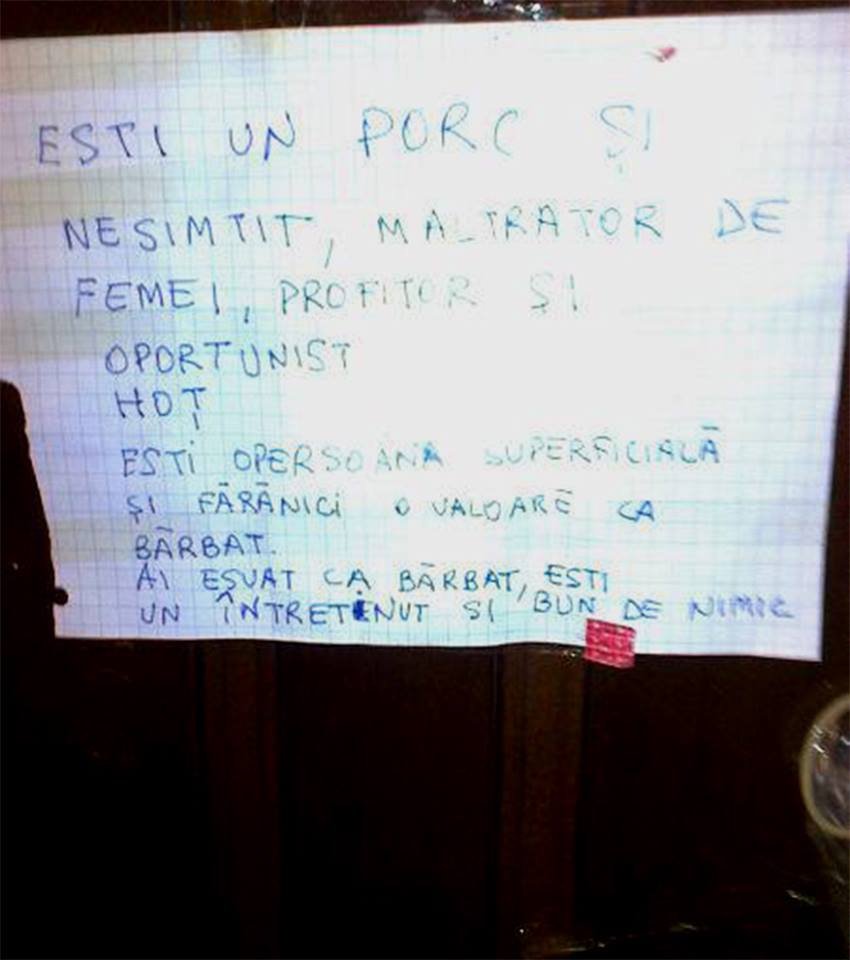 ESTI UN PORC ȘI
NESIMTIT, MALTRATOR DE
FEMEI, PROFITOR ȘI
OPORTUNIST
HOȚ
ESTI OPERSOANA SUPERFICIALĂ
ȘI FĂRĂNICI O VALOARE CA
BĂRBAT.
AI EȘUAT CA BĂRBAT, ESTI
UN ÎNTREȚINUT SI BUN DE NIMIC